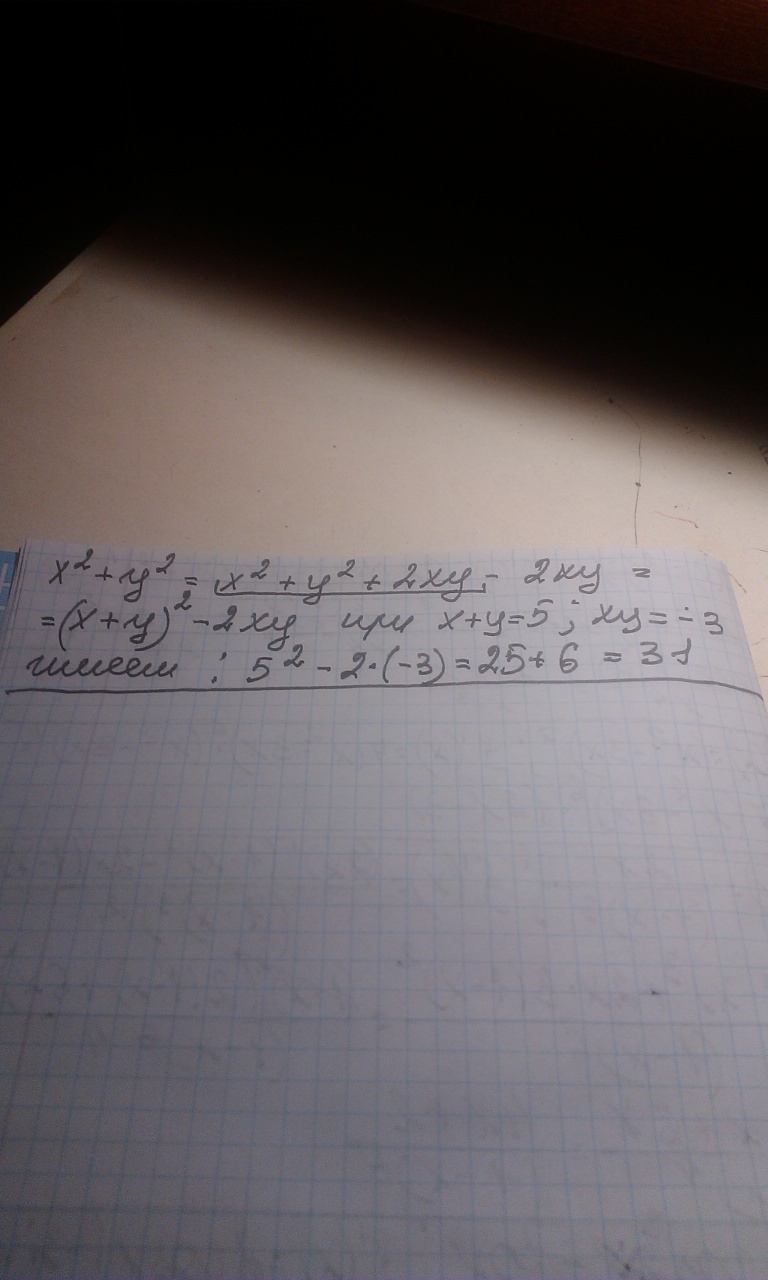 x² + y² = x² + y² + 2xy - 2xy =
= (x+y)² - 2xy при x+y=5; xy=-3
имеем : 5² - 2·(-3) = 25 + 6 = 31